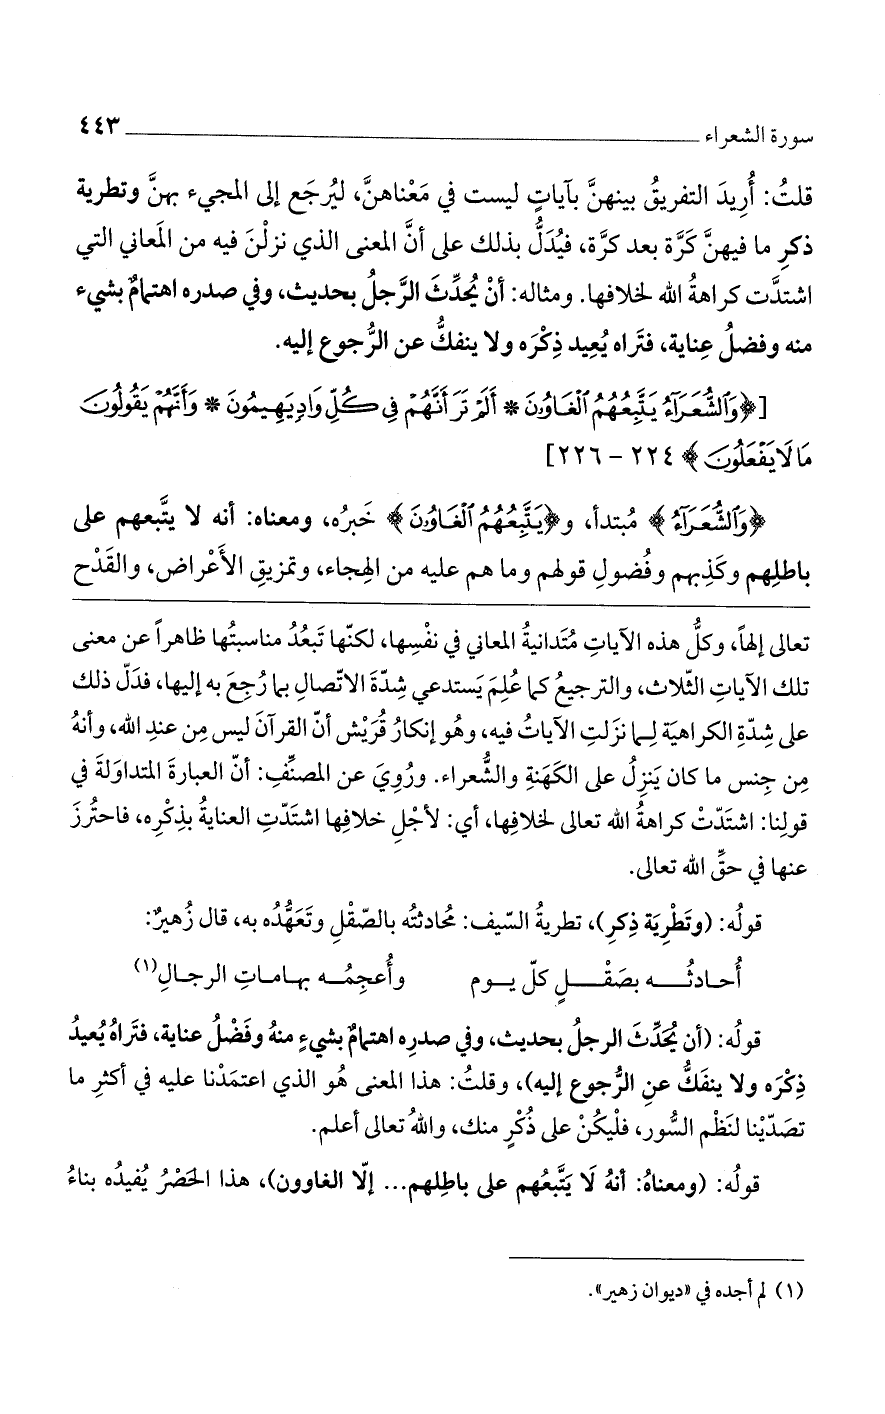 سورة الشعراء ٤٤٣
قلتُ: أُريدَ التفريقُ بينهنَّ بآياتٍ ليست في مَعْناهنَّ، ليُرجَع إلى المجيء بهنَّ وتطرية
ذكرِ ما فيهنَّ كَرَّة بعد كرَّة، فيُدَلُّ بذلك على أنَّ المعنى الذي نزلْنَ فيه من المَعاني التي
اشتدَّت كراهةُ الله لخلافها. ومثاله: أنْ يُحدِّثَ الرَّجلُ بحديث، وفي صدره اهتمامٌ بشيء
منه وفضلُ عِناية، فتَراه يُعِيد ذِكْرَه ولا ينفكُّ عن الرُّجوع إليه.
[﴿وَٱلشُّعَرَآءُ يَتَّبِعُهُمُ ٱلْغَاوُۥنَ * أَلَمْ تَرَ أَنَّهُمْ فِي كُلِّ وَادٍ يَهِيمُونَ * وَأَنَّهُمْ يَقُولُونَ
مَا لَا يَفْعَلُونَ﴾ ٢٢٤ - ٢٢٦]
﴿وَٱلشُّعَرَآءُ﴾ مُبتدأ، و﴿يَتَّبِعُهُمُ ٱلْغَاوُۥنَ﴾ خَبرُه، ومعناه: أنه لا يتَّبعهم على
باطلِهم وكَذِبهم وفُضولِ قولهم وما هم عليه من الهِجاء، وتمزيقِ الأَعْراض، والقَدْح
تعالى إلهاً، وكلُّ هذه الآياتِ مُتَدانيةُ المعاني في نفْسِها، لكنّها تَبعُدُ مناسبتُها ظاهراً عن معنى
تلك الآياتِ الثّلاث، والترجيعُ كما عُلِمَ يَستدعي شِدّةَ الاتّصالِ بما رُجِعَ به إليها، فدَلّ ذلك
على شِدّةِ الكراهيَة لِـما نزَلتِ الآياتُ فيه، وهُو إنكارُ قُرَيْش أنّ القرآنَ ليس مِن عندِ الله، وأنهُ
مِن جِنس ما كان يَنزِلُ على الكَهَنةِ والشُّعراء. ورُوِيَ عن المصنِّفِ: أنّ العبارةَ المتداوَلةَ في
قولِنا: اشتَدّتْ كراهةُ الله تعالى لخلافِها، أي: لأجْلِ خلافِها اشتَدّتِ العنايةُ بذِكْرِه، فاحتُرزَ
عنها في حقِّ الله تعالى.
قولُه: (وتَطْرِيَة ذِكرِ)، تطريةُ السّيف: مُحادثتُه بالصّقْلِ وتَعَهُّدُه به، قال زُهيرٌ:
أُحـادثُـــه بصَقْــــلٍ كلّ يــوم وأُعجِمُــه بهـامـاتِ الرجـالِ(١)
قولُه: (أن يُحَدِّثَ الرجلُ بحديث، وفي صدرِه اهتمامٌ بشيءٍ منهُ وفَضْلُ عناية، فتَراهُ يُعيدُ
ذِكْرَه ولا ينفَكُّ عنِ الرُّجوع إليه)، وقلتُ: هذا المعنى هُو الذي اعتمَدْنا عليه في أكثرِ ما
تصَدّيْنا لنَظْم السُّور، فلْيكُنْ على ذُكْرٍ منك، واللهُ تعالى أعلم.
قولُه: (ومعناهُ: أنهُ لَا يَتَّبعُهم على باطِلهم... إلّا الغاوون)، هذا الحَصْرُ يُفيدُه بناءُ
(١) لم أجده في «ديوان زهير».